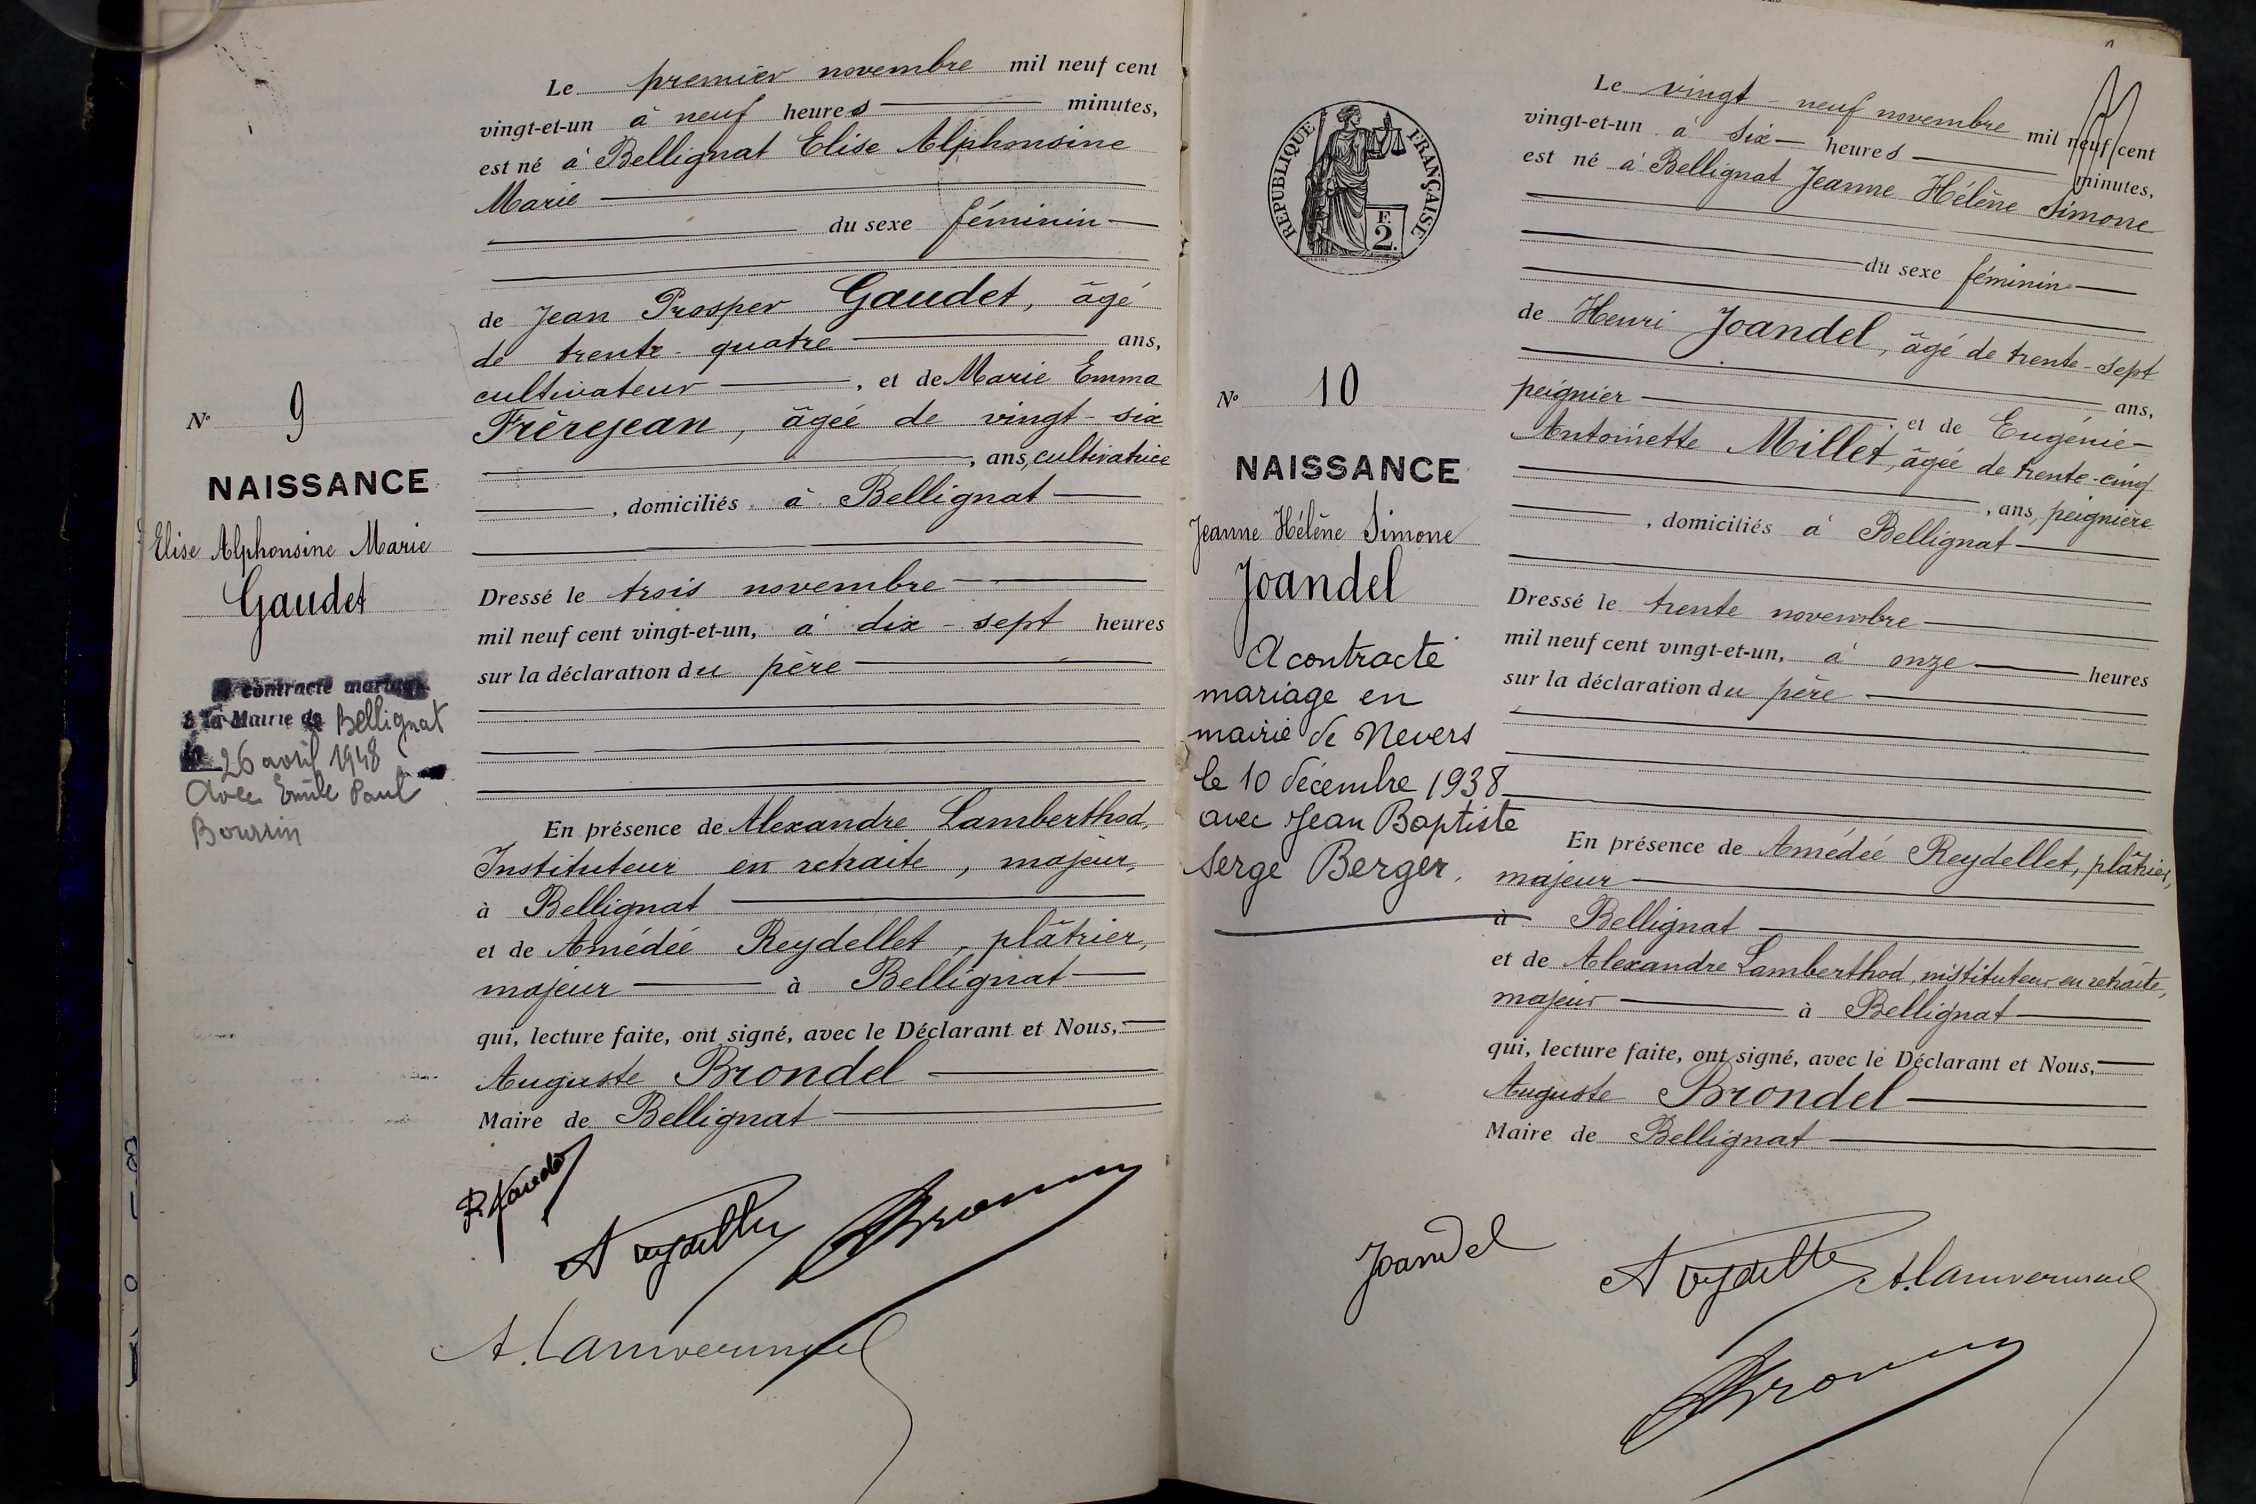 Le premier novembre mil neuf cent
vingt-et-un à neuf heures minutes,
est né à Bellignat Elise Alphonsine
Marie
du sexe féminin
de Jean Prosper Gaudet, âgé
de trente-quatre ans,
cultivateur, et de Marie Emma
Frèrejean, âgée de vingt-six
, ans, cultivatrice
, domiciliés à Bellignat
Dressé le trois novembre
mil neuf cent vingt-et-un, à dix-sept heures
sur la déclaration du père
En présence de Alexandre Lamberthod,
Instituteur en retraite, majeur,
à Bellignat
et de Amédée Reydellet, plâtrier,
majeur à Bellignat
qui, lecture faite, ont signé, avec le Déclarant et Nous,
Auguste Brondel
Maire de Bellignat
N° 9
NAISSANCE
Elise Alphonsine Marie
Gaudet
A contracté mariage
à la Mairie de Bellignat
le 26 avril 1948
avec Emile Paul
Bourrin
RÉPUBLIQUE FRANÇAISE
F.
2.
N° 10
NAISSANCE
Jeanne Hélène Simone
Joandel
A contracté
mariage en
mairie de Nevers
le 10 décembre 1938
avec Jean Baptiste
Serge Berger.
Le vingt-neuf novembre mil neuf cent
vingt-et-un à six heures minutes,
est né à Bellignat Jeanne Hélène Simone
du sexe féminin
de Henri Joandel, âgé de trente-sept
ans,
peignier et de Eugénie
Antoinette Millet, âgée de trente-cinq
, ans, peignière
, domiciliés à Bellignat
Dressé le trente novembre
mil neuf cent vingt-et-un, à onze heures
sur la déclaration du père
En présence de Amédée Reydellet, plâtrier,
majeur
à Bellignat
et de Alexandre Lamberthod, instituteur en retraite,
majeur à Bellignat
qui, lecture faite, ont signé, avec le Déclarant et Nous,
Auguste Brondel
Maire de Bellignat
Joandel